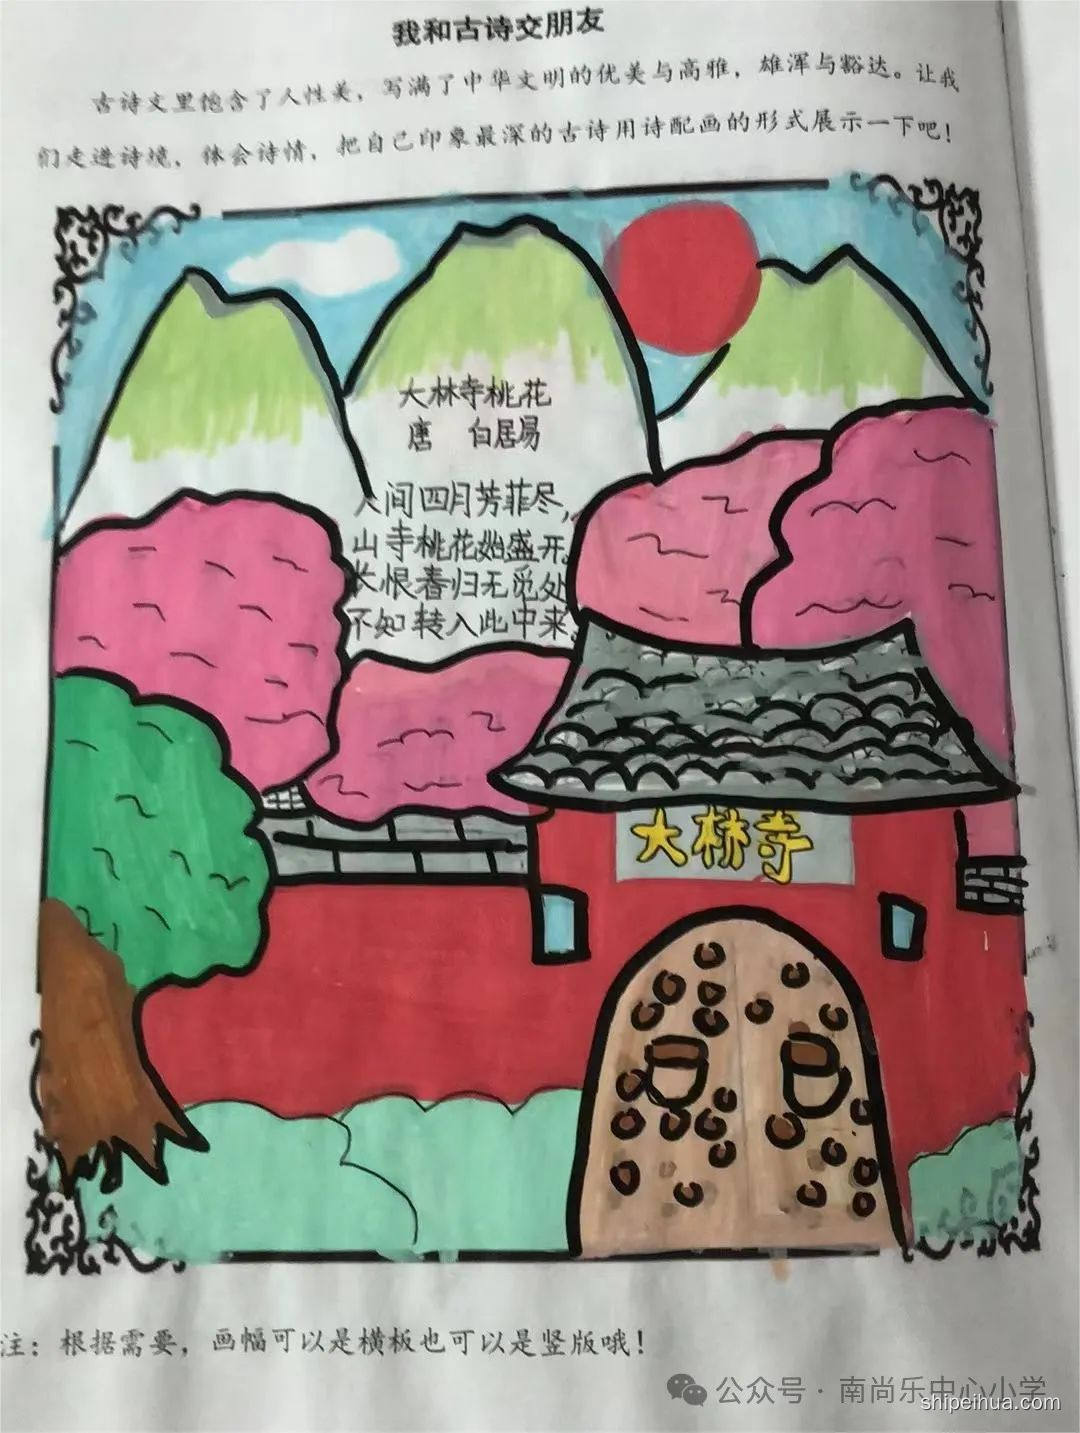 我和古诗交朋友
古诗文里饱含了人性美，写满了中华文明的优美与高雅，雄浑与豁达。让我
们走进诗境，体会诗情，把自己印象最深的古诗用诗配画的形式展示一下吧！
大林寺桃花
唐 白居易
人间四月芳菲尽，
山寺桃花始盛开。
长恨春归无觅处
不知转入此中来。
大林寺
注：根据需要，画幅可以是横板也可以是竖版哦！
公众号·南尚乐中心小学
shipeihua.com